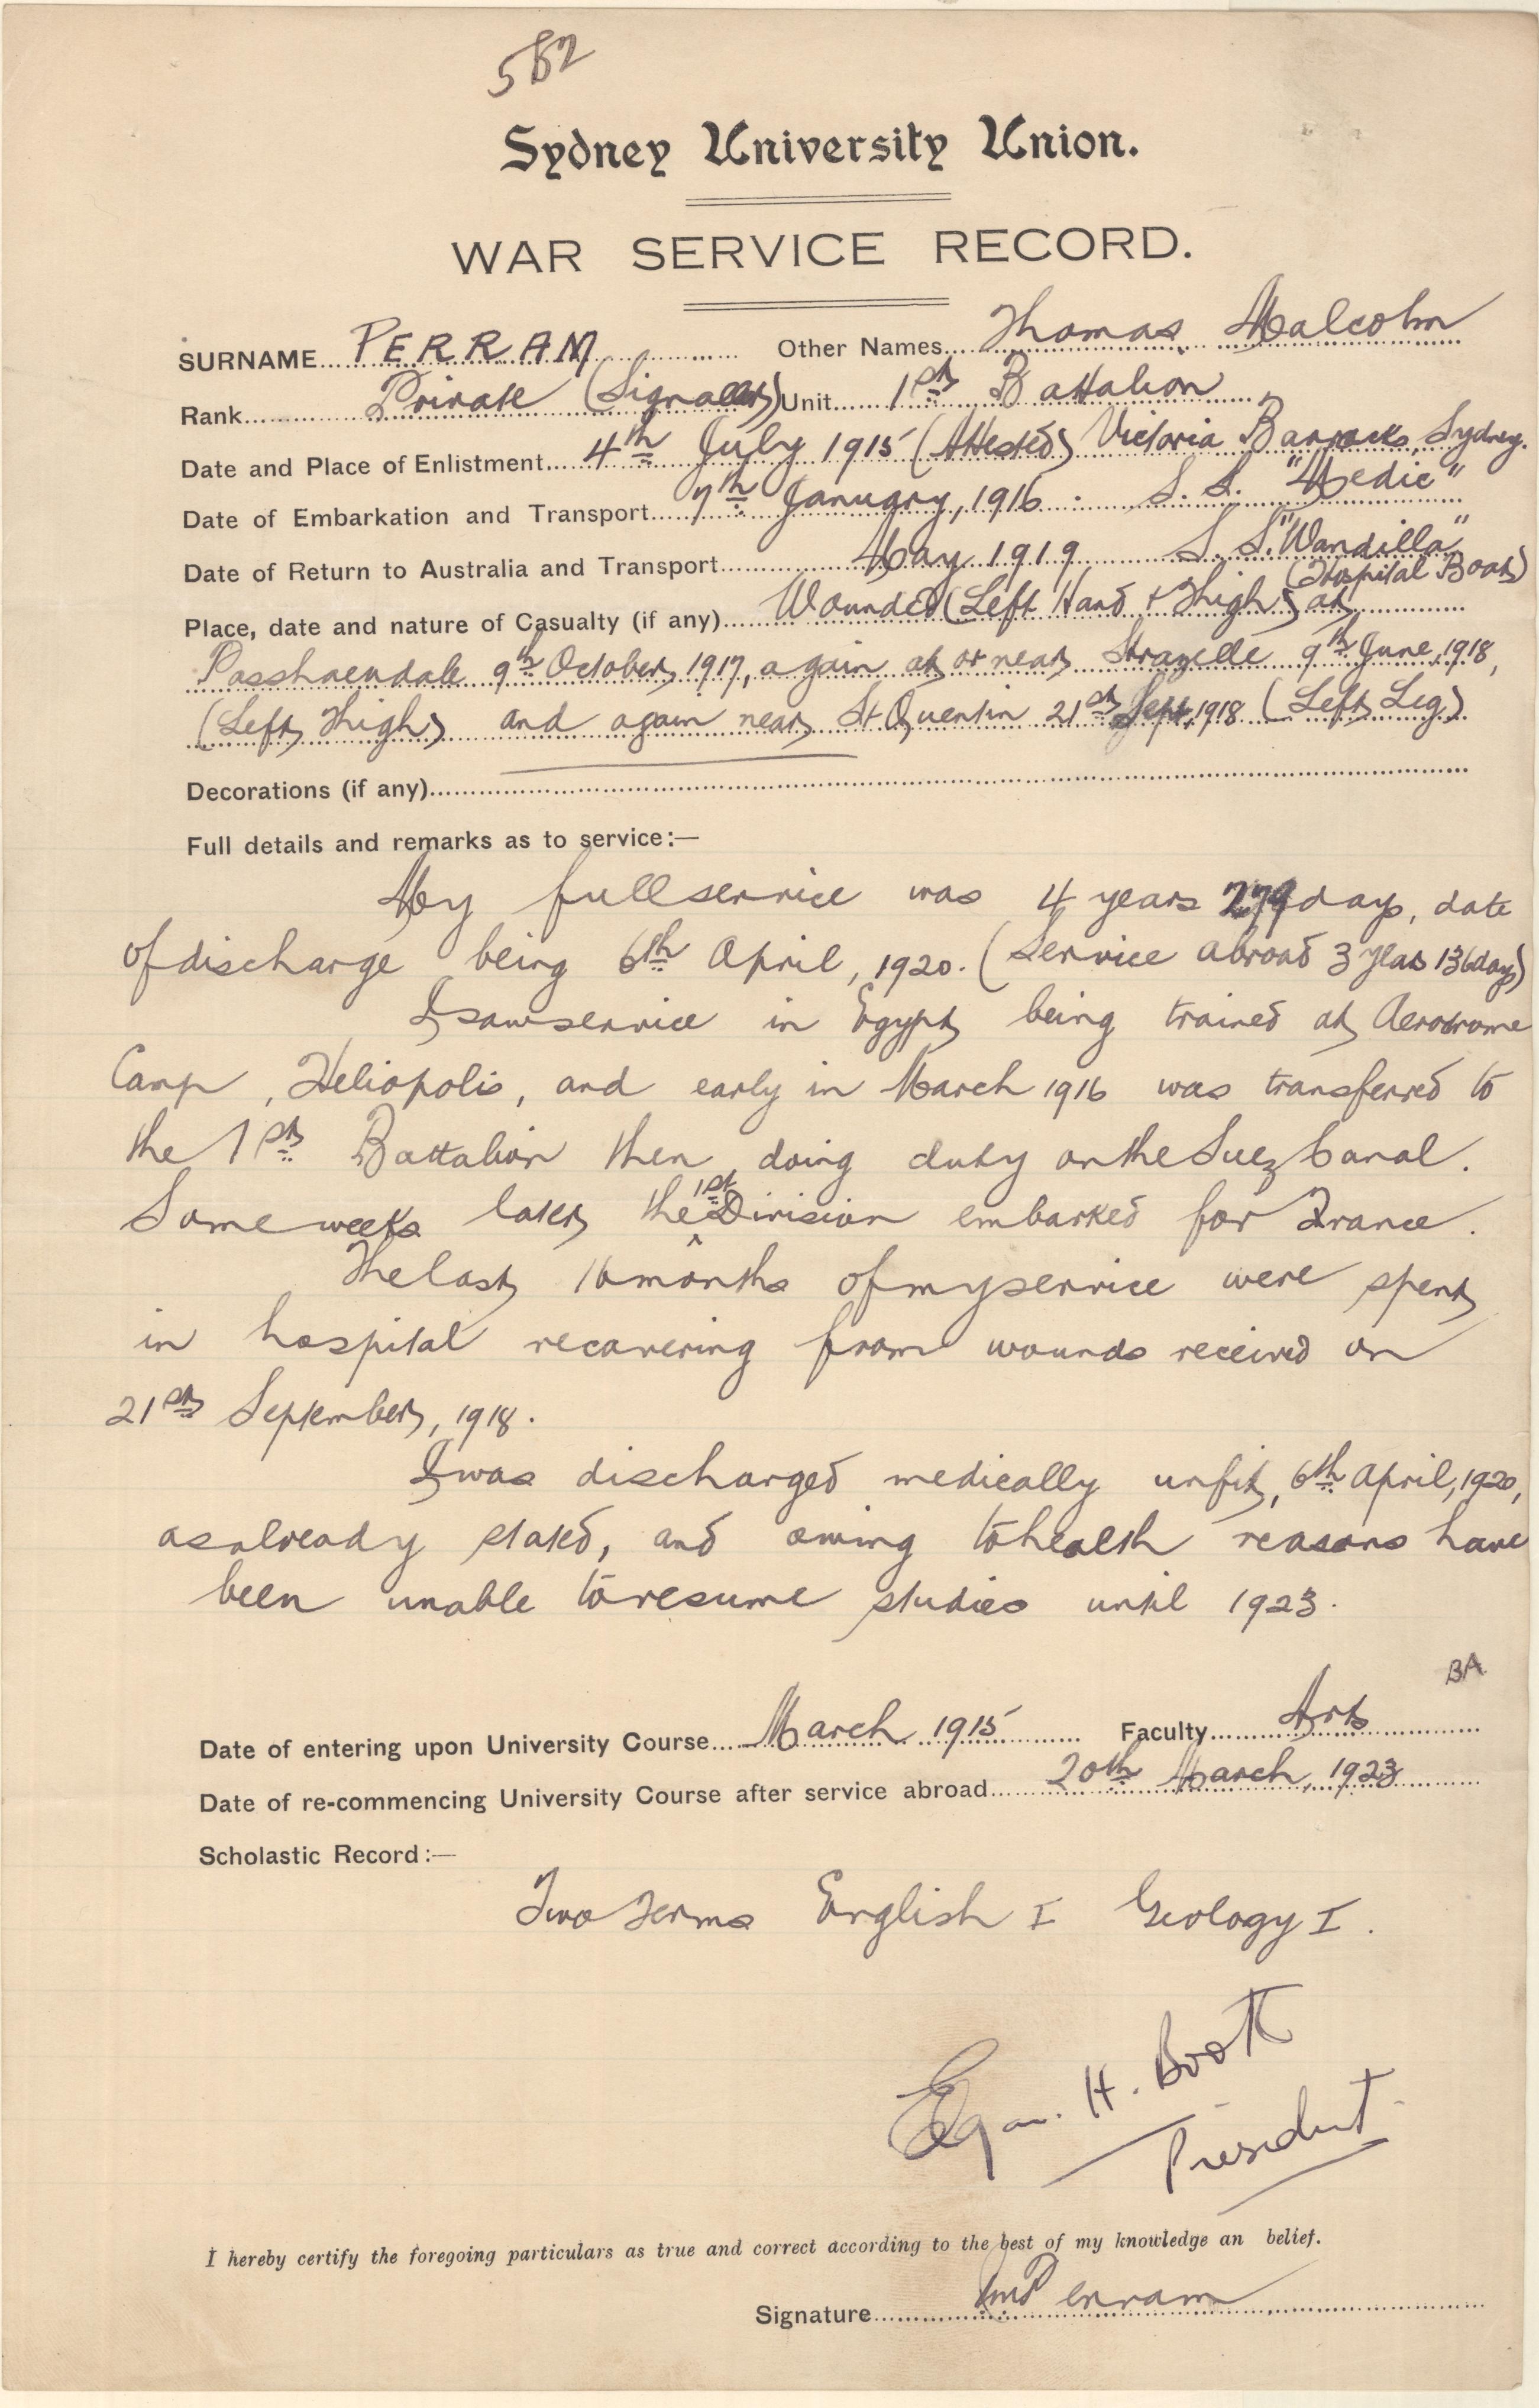 582
Sydney University Union.
WAR SERVICE RECORD.
SURNAME PERRAM Other Names Thomas Malcolm
Rank Private (Signaller) Unit 1st Battalion
Date and Place of Enlistment 4th July 1915 (Attested) Victoria Barracks, Sydney.
Date of Embarkation and Transport 7th January, 1916. S.S. "Medic"
Date of Return to Australia and Transport May 1919 S.S. "Wandilla"
(Hospital Boat)
Place, date and nature of Casualty (if any) Wounded (Left Hand + Thigh) at
Passhaendale 9th October, 1917, again at or near Strazelle 9th June, 1918,
(Left Thigh) and again near St Quentin 21st Sept, 1918 (Left Leg)
Decorations (if any)
Full details and remarks as to service:—
My full service was 4 years 279 days, date
of discharge being 6th April, 1920. (Service abroad 3 years 136 days)
I saw service in Egypt being trained at Aerodrome
Camp, Heliopolis, and early in March 1916 was transferred to
the 1st Battalion then doing duty on the Suez Canal.
Some weeks later the 1st Division embarked for France.
The last 16 months of my service were spent
in hospital recovering from wounds received on
21st September, 1918.
I was discharged medically unfit, 6th April, 1920,
as already stated, and owing to health reasons have
been unable to resume studies until 1923.
BA
Date of entering upon University Course March 1915 Faculty Arts
Date of re-commencing University Course after service abroad 20th March, 1923
Scholastic Record:—
Two Terms English I Geology I.
Edgar. H. Booth
President
I hereby certify the foregoing particulars as true and correct according to the best of my knowledge an belief.
Signature TMPerram